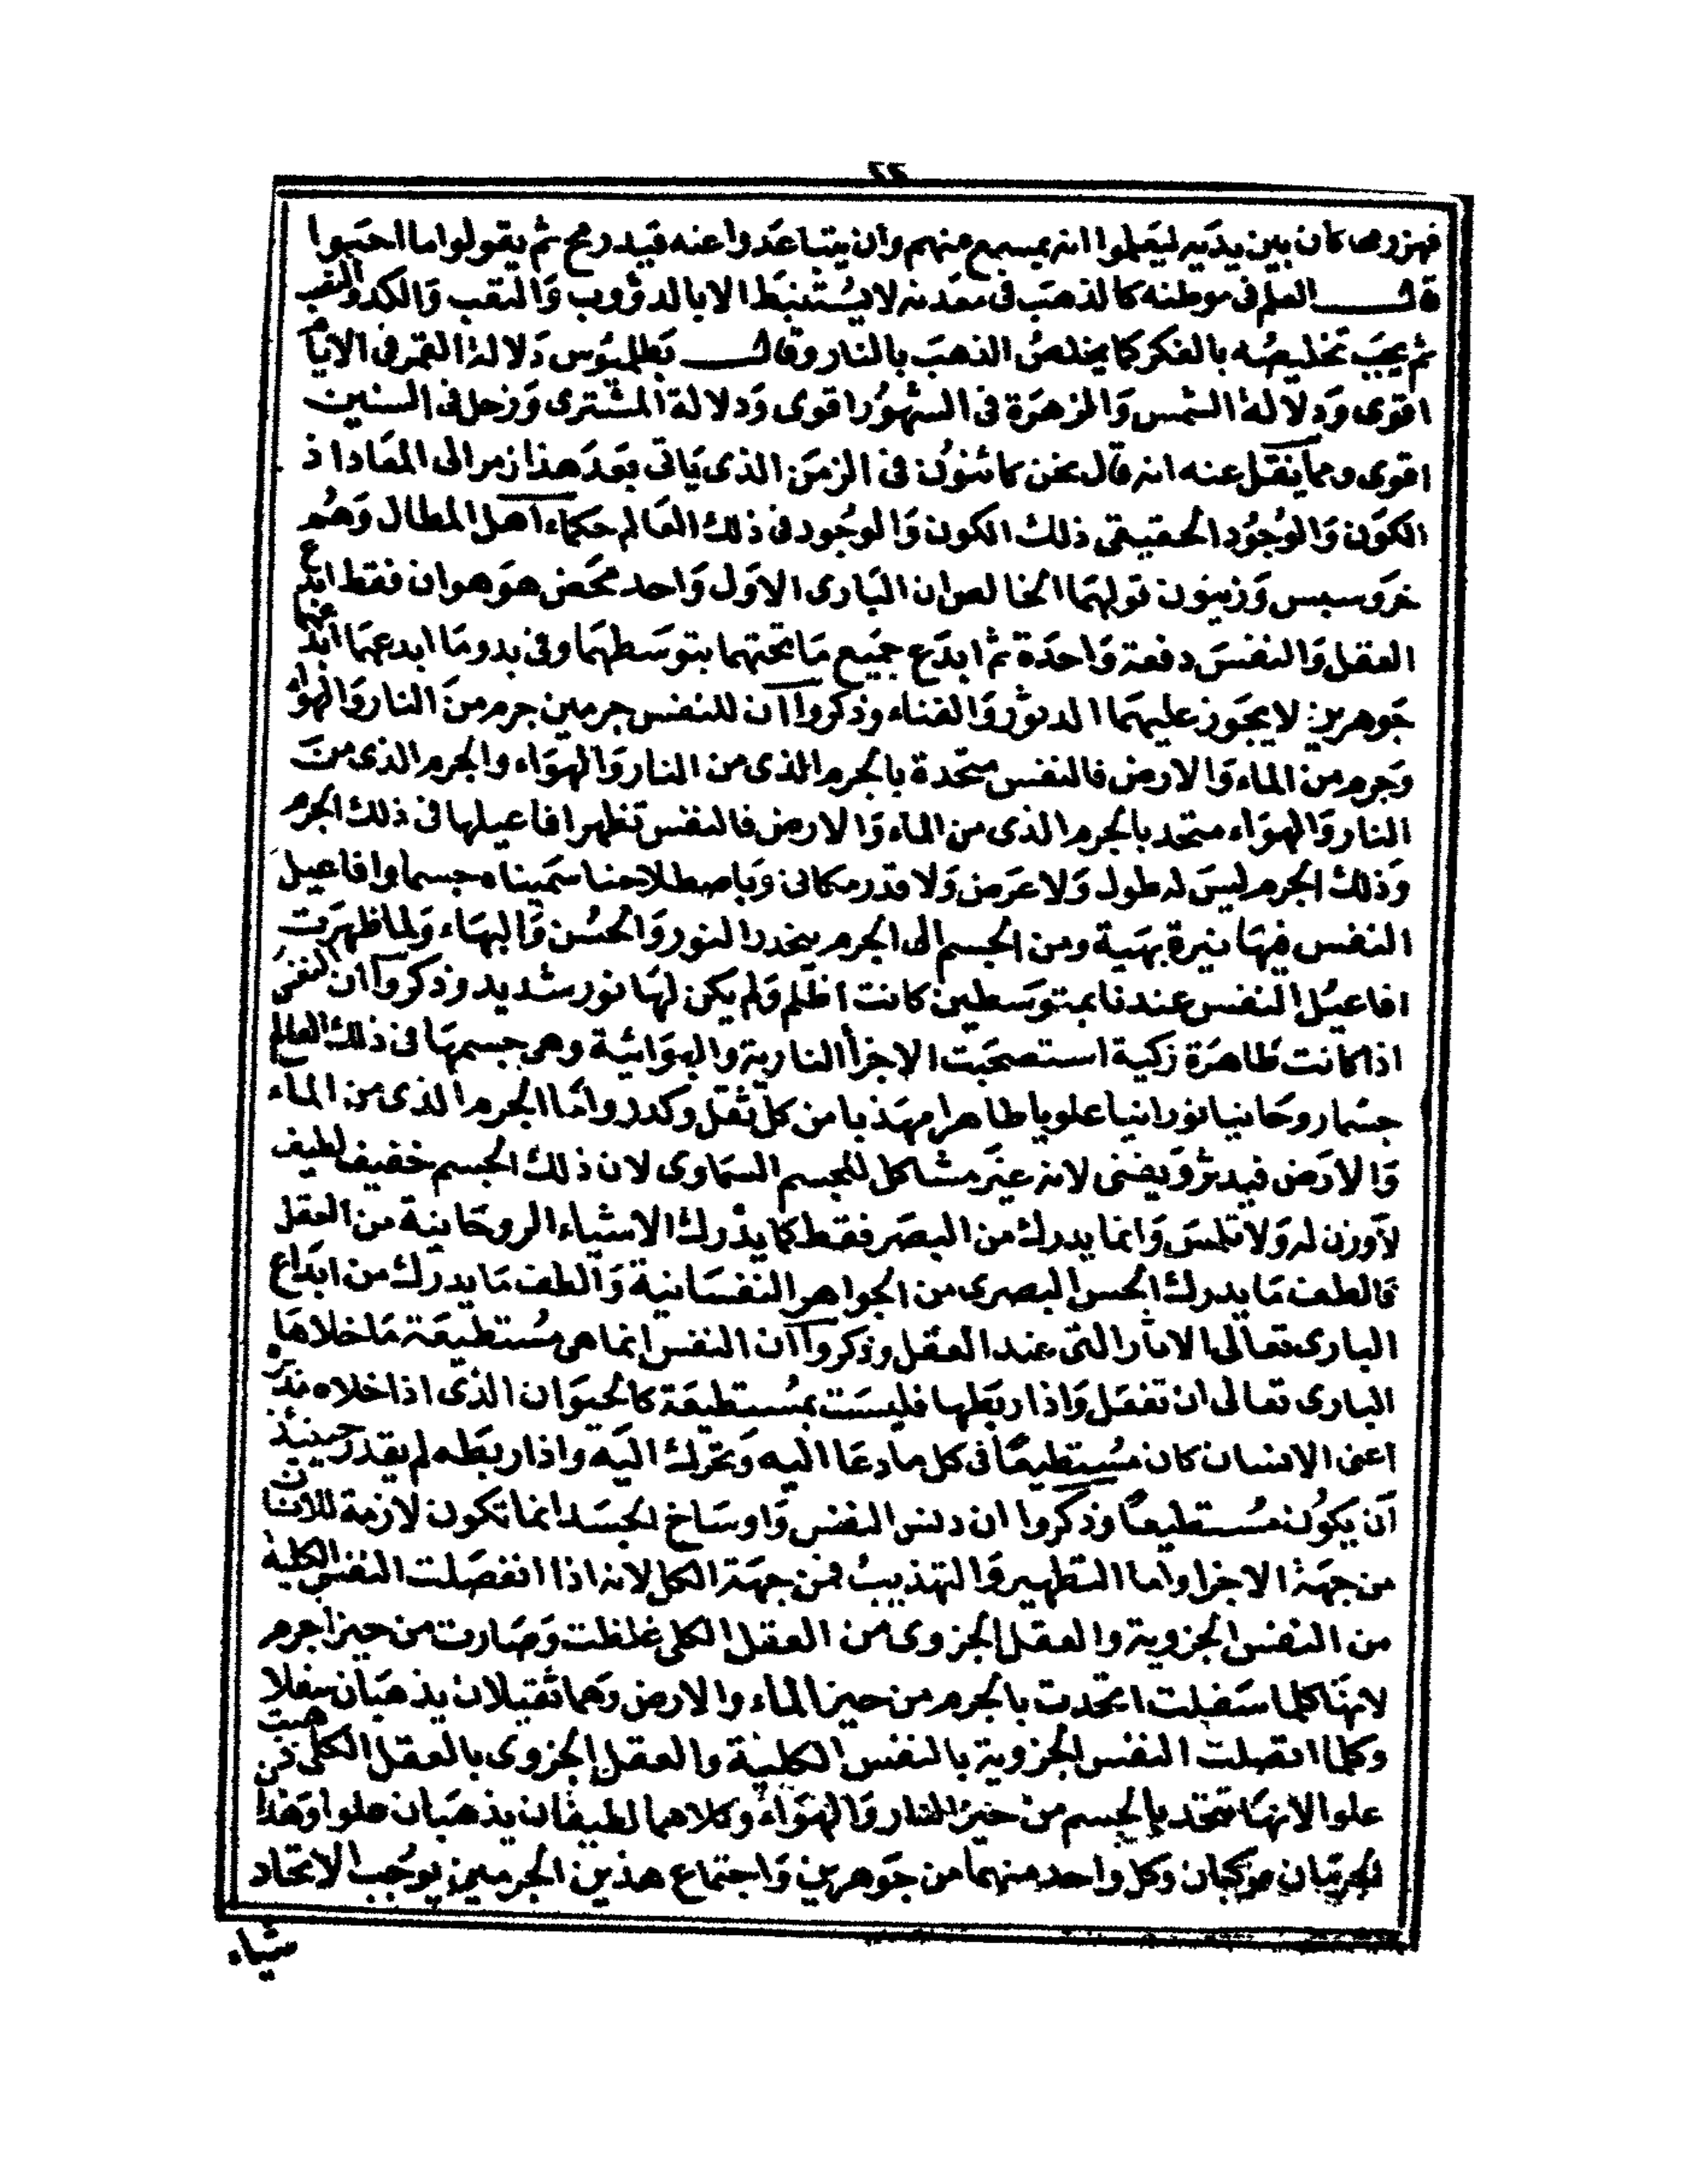 ٤٤
فهز رمحا كان بين يديه ليعلموا انه بمسمع منهم وان يتباعدوا عنه قيد رمح ثم يقولوا ما احبوا
قال العلم فى موطنه كالذهب فى معدنه لا يستنبط الا بالدؤوب والتعب والكد والنصب
ثم يجب تخليصه بالفكر كما يخلص الذهب بالنار وقال بطلميوس دلالة القمر فى الايام
اقوى ودلالة الشمس والزهرة فى الشهور اقوى ودلالة المشترى وزحل فى السنين
اقوى ومما ينقل عنه انه قال نحن كائنون فى الزمن الذى ياتى بعد هذا رمز الى المعاد اذ
الكون والوجود الحقيقى ذلك الكون والوجود فى ذلك العالم حكماء اهل المطال وهم
خروسبس وزينون قولهما الخالص ان البارى الاول واحد محض هو هو ان فقط ابدع
العقل والنفس دفعة واحدة ثم ابدع جميع ما تحتهما بتوسطهما وفى بدو ما ابدعهما ابدعهما
جوهرين لا يجوز عليهما الدثور والفناء وذكروا ان للنفس جرمين جرم من النار والهواء
وجرم من الماء والارض فالنفس متحدة بالجرم الذى من النار والهواء والجرم الذى من
النار والهواء متحد بالجرم الذى من الماء والارض فالنفس تظهر افاعيلها فى ذلك الجرم
وذلك الجرم ليس له طول ولا عرض ولا قدر مكانى وباصطلاحنا سميناه جسما وافاعيل
النفس فيها نيرة بهية ومن الجسم الى الجرم ينحدر النور والحسن والبهاء ولما ظهرت
افاعيل النفس عندنا بمتوسطين كانت اظلم ولم يكن لها نور شديد وذكروا ان النفس
اذا كانت طاهرة زكية استصحبت الاجزأ النارية والهوائية وهى جسمها فى ذلك العالم
جسما روحانيا نورانيا علويا طاهرا مهذبا من كل ثقل وكدر واما الجرم الذى من الماء
والارض فيدثر ويفنى لانه غير مشاكل للجسم السماوى لان ذلك الجسم خفيف لطيف
لاوزن له ولا تلمس وانما يدرك من البصر فقط كما يدرك الاشياء الروحانية من العقل
فالطف ما يدرك الحس البصرى من الجواهر النفسانية والطف ما يدرك من ابداع
البارى تعالى الاثار التى عند العقل وذكروا ان النفس انما هى مستطيعة ما خلاها
البارى تعالى ان تفعل واذا ربطها فليست بمستطيعة كالحيوان الذى اذا خلاه مدبره
اعنى الانسان كان مستطيعا فى كل ما دعا اليه وتحرك اليه واذا ربطه لم يقدر حينئذ
ان يكون مستطيعا وذكروا ان دنس النفس واوساخ الجسد انما تكون لازمة للانسان
من جهة الاجزا واما التطهير والتهذيب فمن جهة الكل لانه اذا انفصلت النفس الكلية
من النفس الجزوية والعقل الجزوى من العقل الكلى غلظت وصارت من حيز اجرم
لانها كلما سفلت اتحدت بالجرم من حيز الماء والارض وهما ثقيلان يذهبان سفلا
وكلما اتصلت النفس الجزوية بالنفس الكلية والعقل الجزوى بالعقل الكلى ذهبت
علوا لانها تتحد بالجسم من حيز النار والهواء وكلاهما لطيفان يذهبان علوا وهذا
الجرمان مركبان وكل واحد منهما من جوهرين واجتماع هذين الجرمين يوجب الاتحاد
شياء